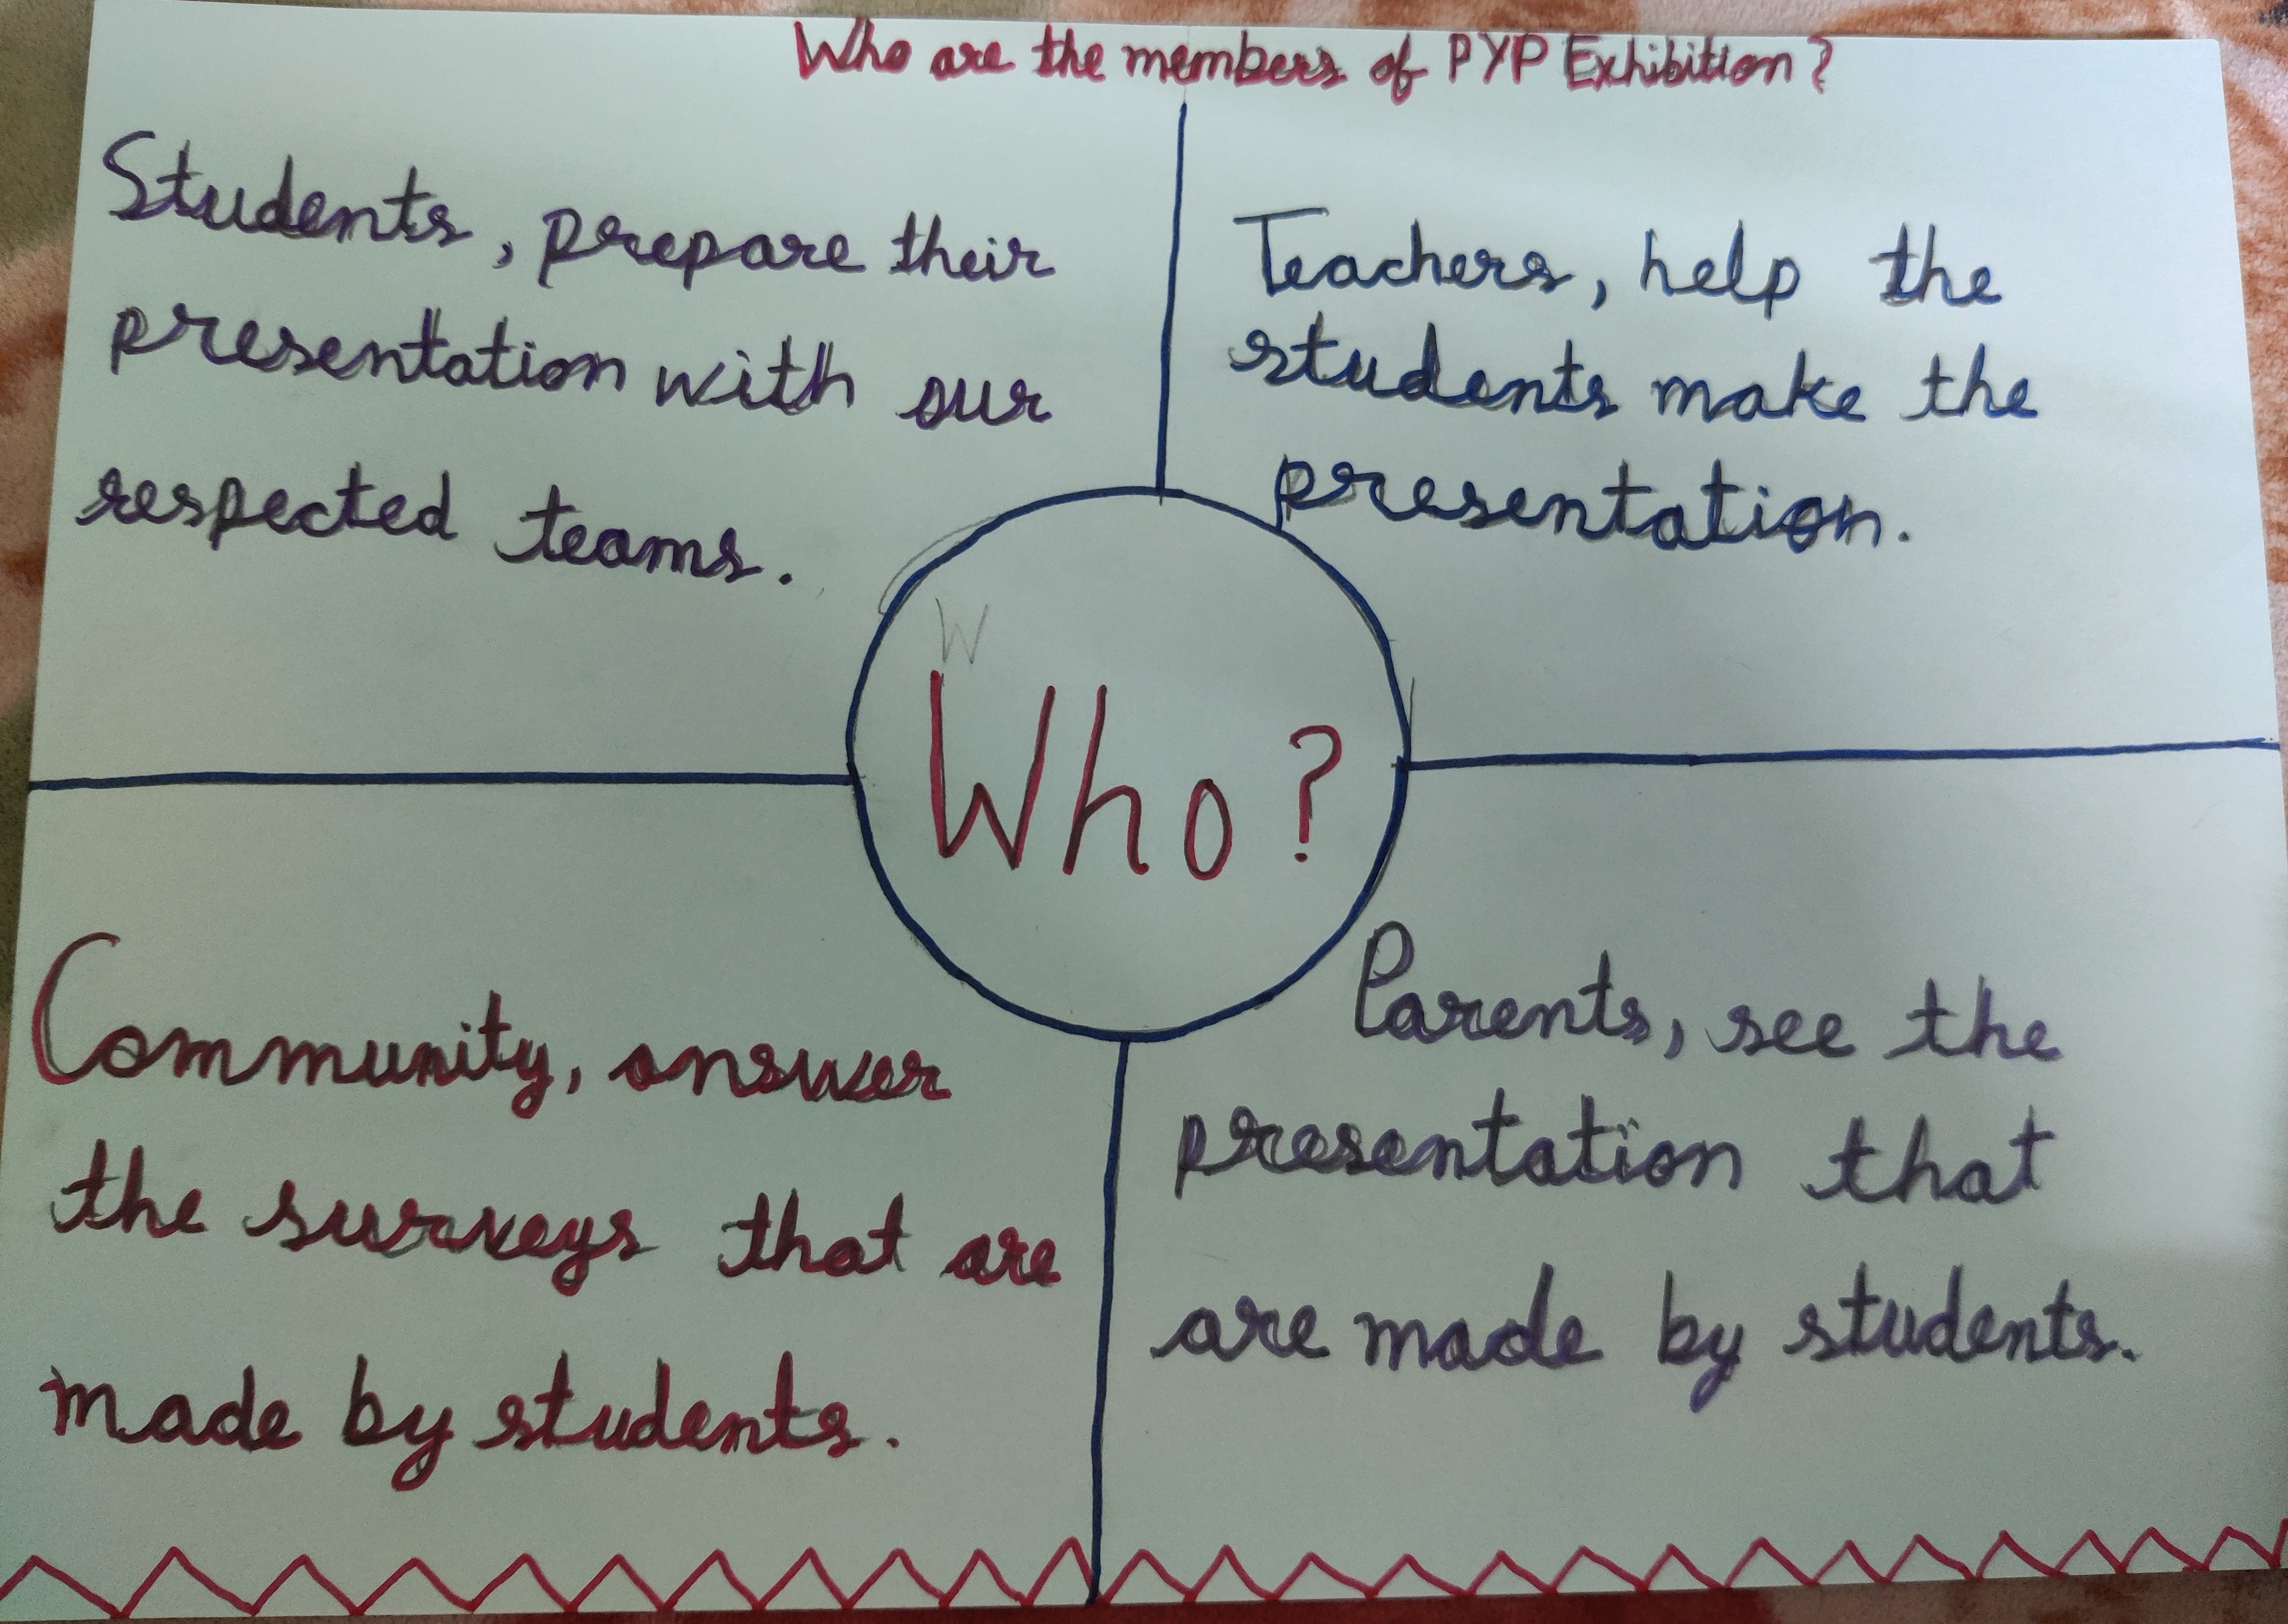 Who are the members of PYP Exhibition?
Students, prepare their
presentation with our
respected teams.
Teachers, help the
students make the
presentation.
W
Who?
Community, answer
the surveys that are
made by students.
Parents, see the
presentation that
are made by students.